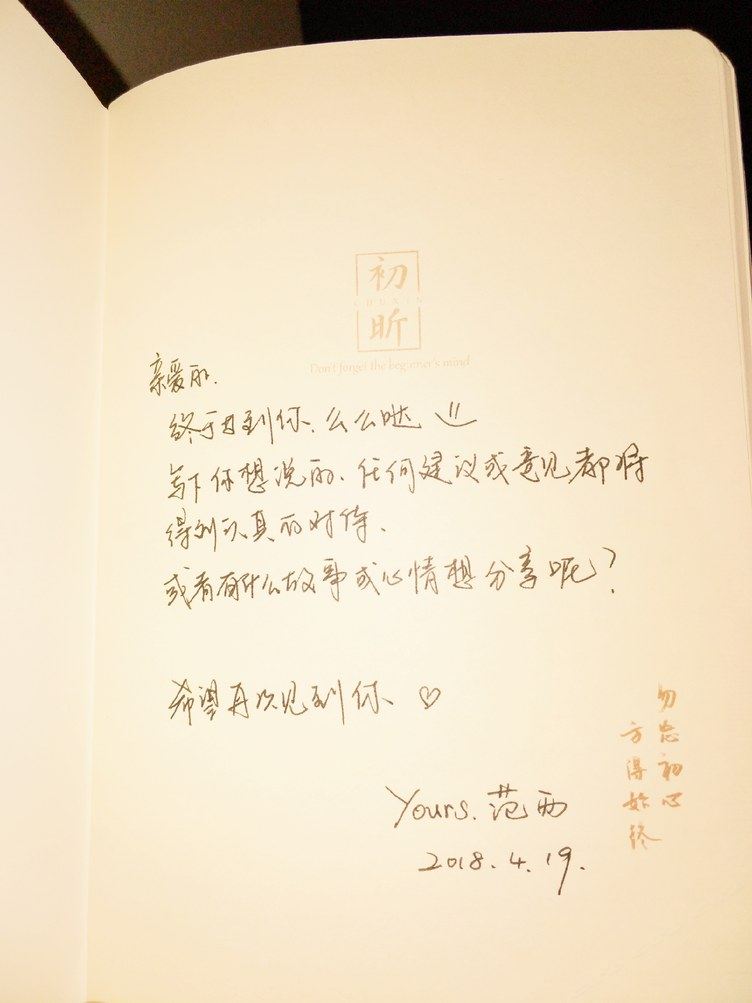 初
CHUXIN
昕
Don't forget the beginner's mind
亲爱的.
终于遇到你、么么哒
写下你想说的、任何建议或意见都将
得到认真的对待、
或者有什么故事或心情想分享呢?
希望再次见到你、♡
Yours. 范西
2018.4.19.
勿忘初心
方得始终